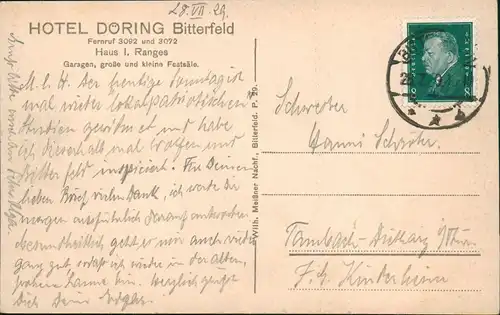 28.VII.29.
HOTEL DÖRING Bitterfeld
Fernruf 3092 und 3072
Haus I. Ranges
Garagen, große und kleine Festsäle.
M. l. H. Der heutige Sonntag ist
mal wieder lokalpatriotischen
Studien gewidmet und habe
ich dieserhalb mal
Bitterfeld inspiziert. Für Deinen
lieben Brief vielen Dank, ich werde Dir
morgen ausführlich darauf antworten.
Gesundheitlich geht es mir auch wieder
ganz gut, sodaß ich wieder in der alten,
frohen Laune bin. Herzlich grüßt
Dich Dein Edgar.
Wilh. Meißner Nachf., Bitterfeld. P. 29.
Schwester
Hanni Schröter.
Tambach-Dietharz i/Thür.
Kinderheim